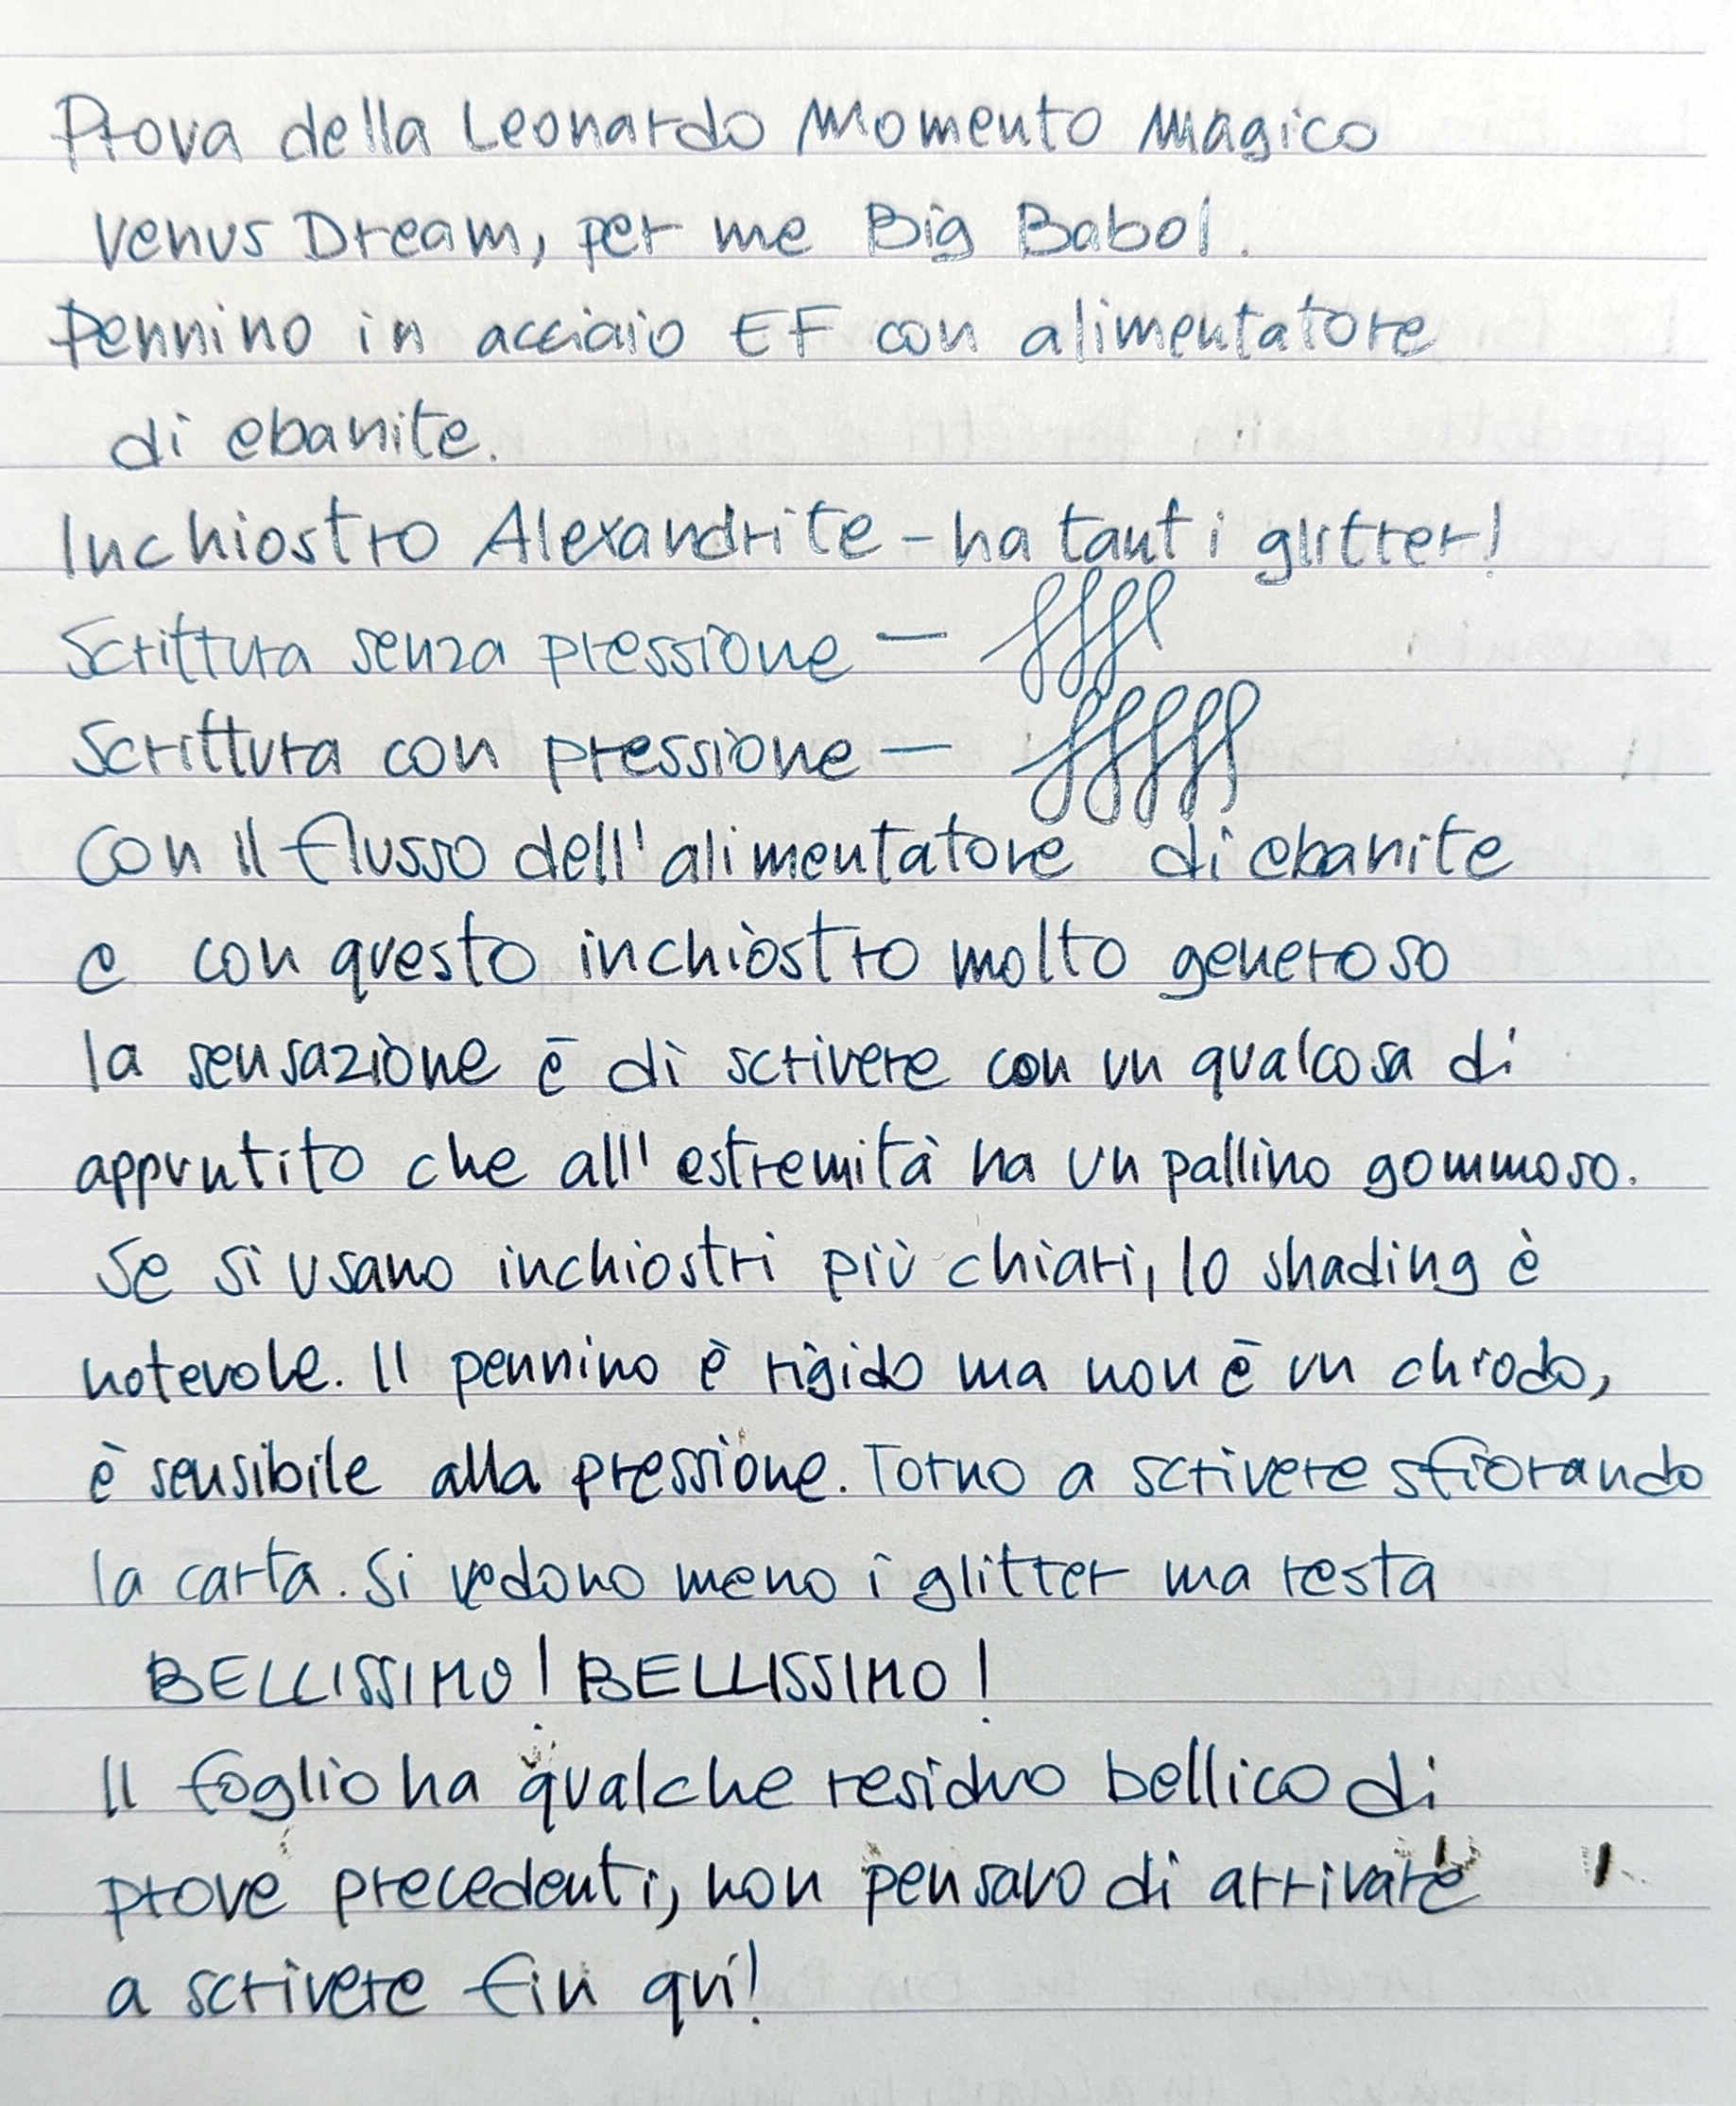 Prova della Leonardo Momento Magico
Venus Dream, per me Big Babol.
Pennino in acciaio EF con alimentatore
di ebanite.
Inchiostro Alexandrite - ha tanti glitter!
Scrittura senza pressione —
Scrittura con pressione —
Con il flusso dell'alimentatore di ebanite
e con questo inchiostro molto generoso
la sensazione è di scrivere con un qualcosa di
appuntito che all'estremità ha un pallino gommoso.
Se si usano inchiostri più chiari, lo shading è
notevole. Il pennino è rigido ma non è un chiodo,
è sensibile alla pressione. Torno a scrivere sfiorando
la carta. Si vedono meno i glitter ma resta
BELLISSIMO! BELLISSIMO!
Il foglio ha qualche residuo bellico di
prove precedenti, non pensavo di arrivare
a scrivere fin qui!